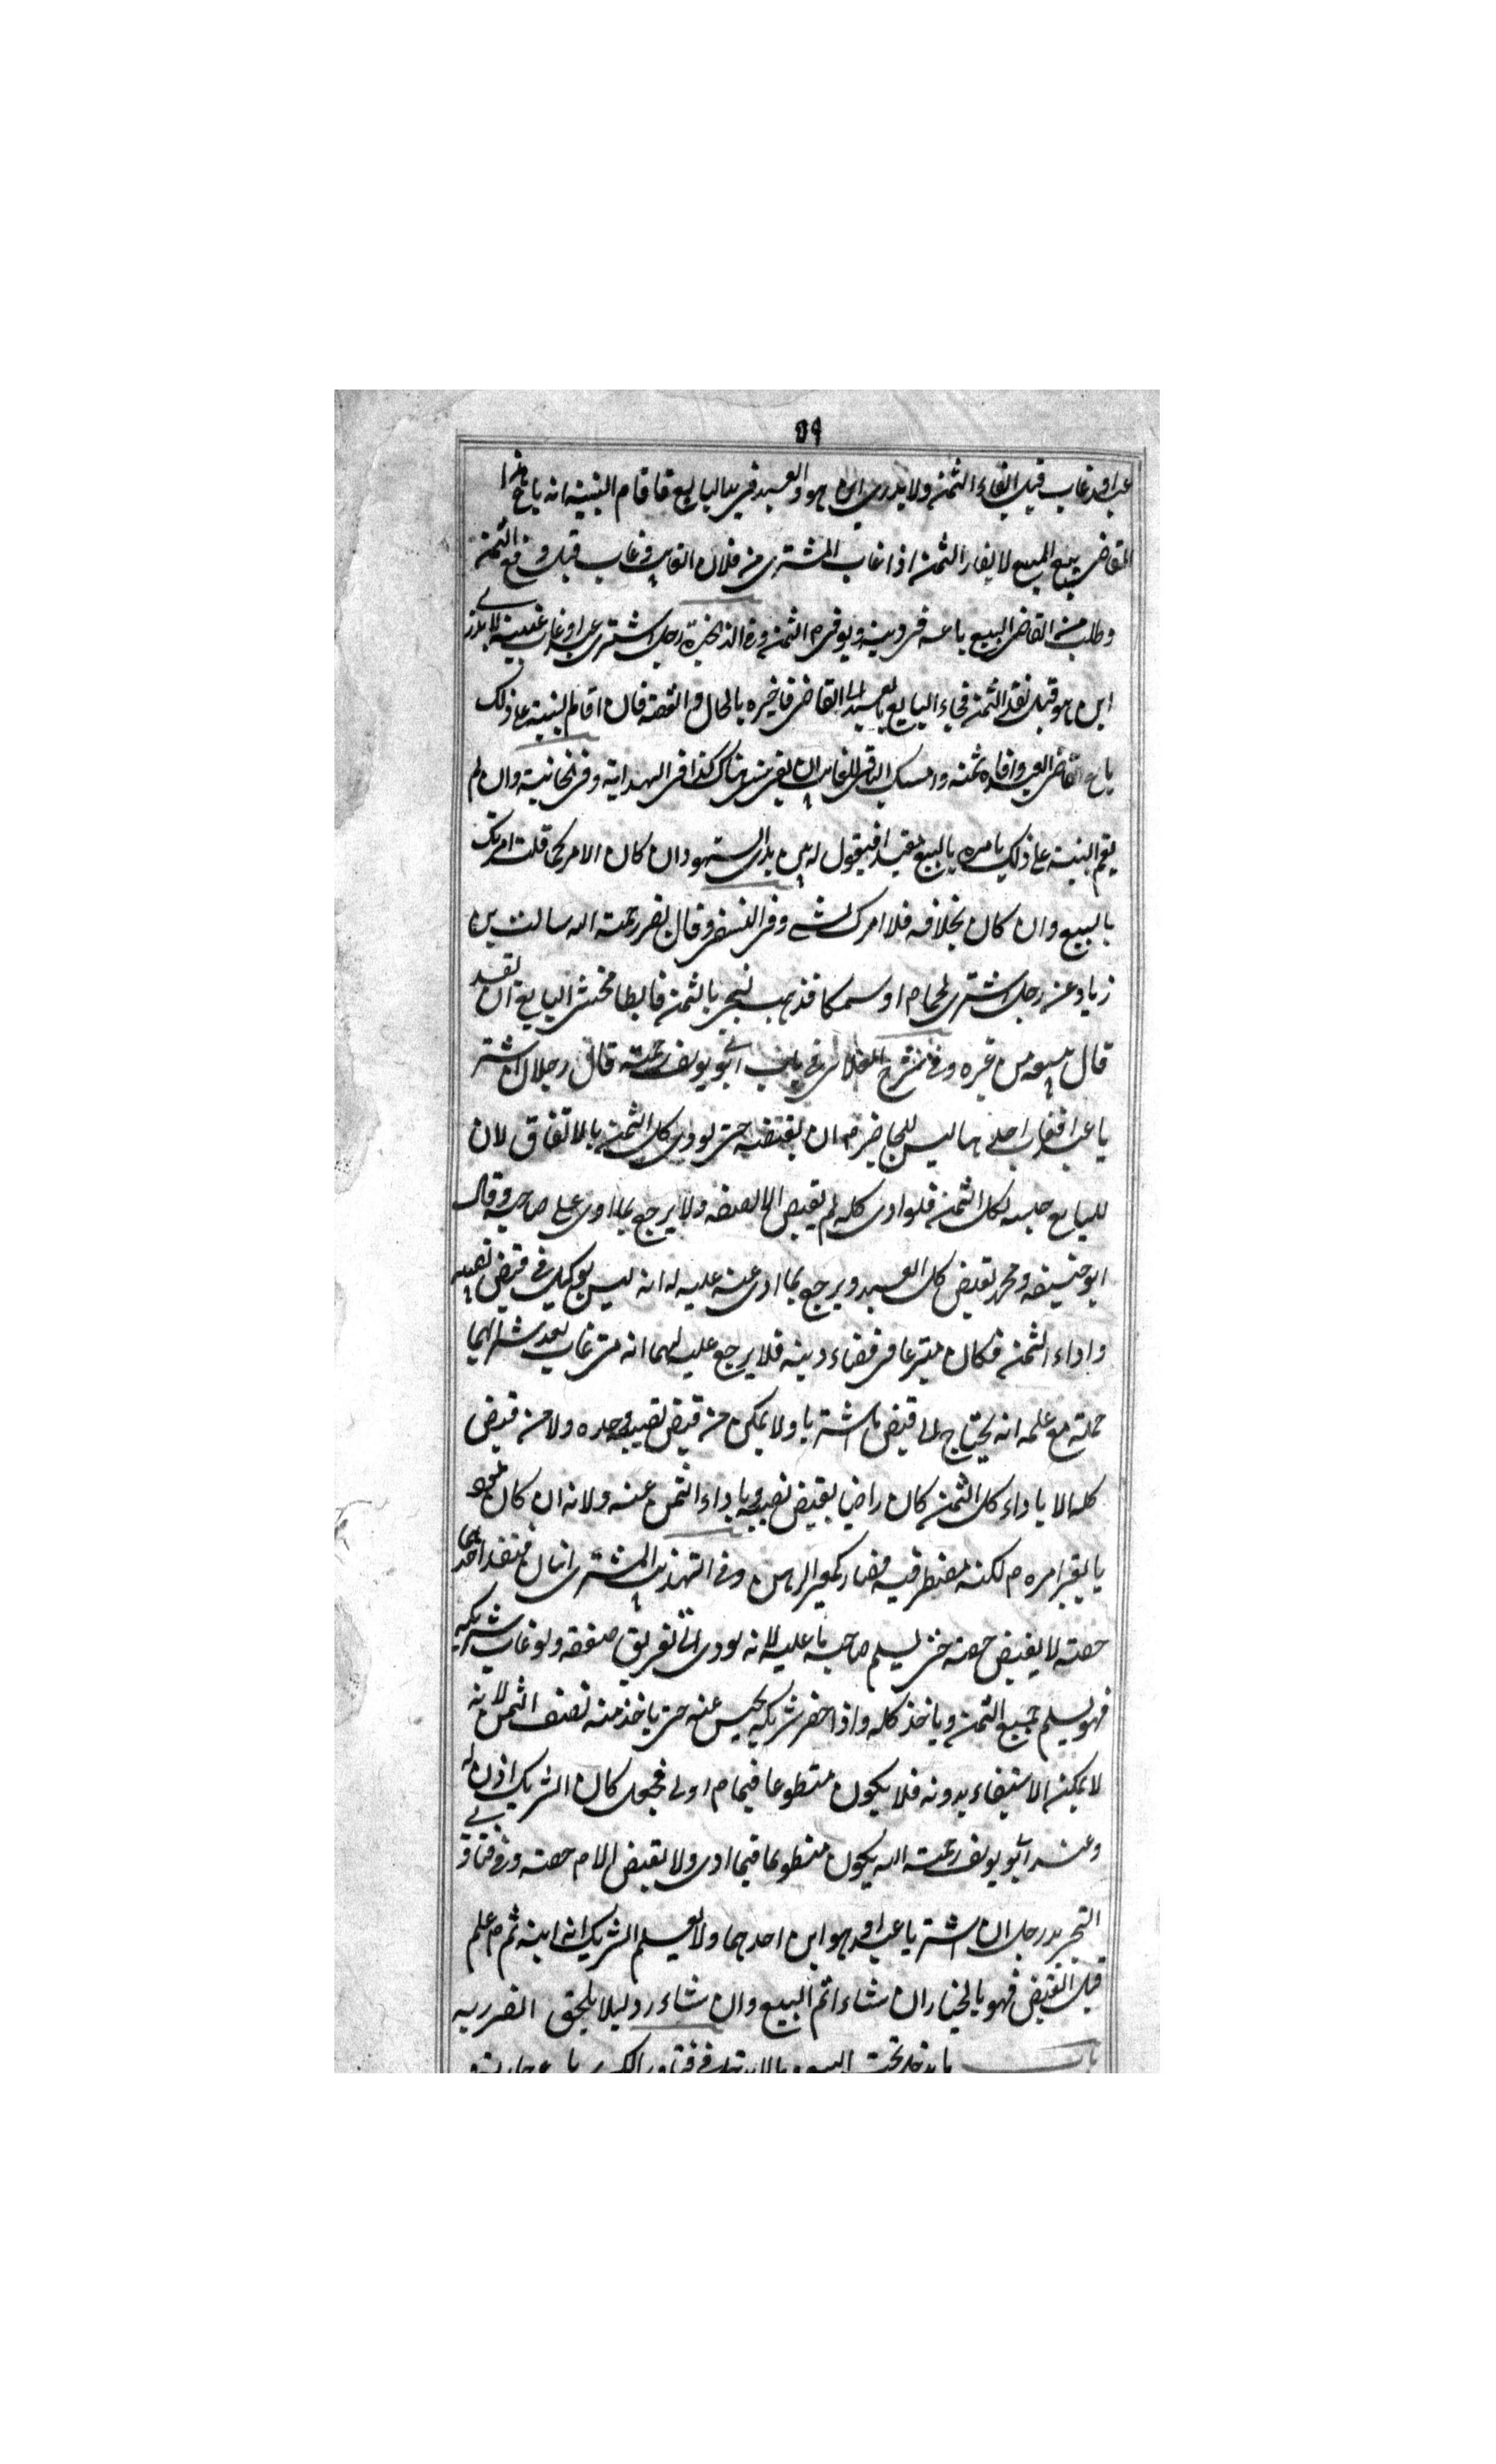 ٥٩
عبدا فغاب قبل ايفاء الثمن ولا يدرى اين هو والعبد فى يد البايع فاقام البينة انه باع هذا
القاضى يبيع المبيع لايفاء الثمن اذا غاب المشترى من فلان الغايب وغاب قبل دفع الثمن
وطلب من القاضى البيع باعه فى دينه ويوفى الثمن وفى الذخيرة رجل اشترى عبدا وغاب غيبة لا يدرى
اين هو قبل نقد الثمن فجاء البايع بالعبد الى القاضى فاخبره بالحال والقصة فان اقام البينة على ذلك
باع القاضى العبد وافاه ثمنه وامسك الباقى للغايب ان بقى شىء هناك كذا فى الهداية وفى الخانية وان لم
يقم البينة على ذلك يامره بالبيع مقيدا فيقول له بين يدى الشهود ان كان الامر كما قلت امرتك
بالبيع وان كان بخلافه فلا امرك بشىء وفى النسفى وقال نصر رحمة الله سالت بن
زياد عن رجل اشترى لحما او سمكا فذهب ليجىء بالثمن فابطا فخشى البايع ان يفسد
قال يبيعه من غيره وفى شرح فى باب ابى يوسف رحمة قال رجلان اشتر
يا عبدا فغاب احدهما ليس للحاضر ان يقبضه حتى يودى كل الثمن بالاتفاق لان
للبايع حبسه لكل الثمن فلو ادى كله لم يقبض الا نصفه ولا يرجع بما ادى على صاحبه وقال
ابو حنيفة ومحمد يقبض كل العبد ويرجع بما ادى عنه عليه له انه ليس بوكيل فى قبض نصيبه
واداء الثمن فكان متبرعا فى قضاء دينه فلا يرجع عليه لهما انه متى غاب بعد شرائهما
جملة مع علمه انه يحتاج الى قبض ما اشتريا ولا يمكن من قبض نصيبه وحده ولا من قبض
كله الا باداء كل الثمن كان راضيا بقبض نصيبه وباداء الثمن عنه ولانه ان كان
بالغير امره لكنه مضطر فيه فصار كمعير الرهن وفى التهذيب المشترى اثنان فنقد احدهما
حصته لا يقبض حصته حتى يسلم صاحبه ما عليه لانه يودى الى تفريق صفقه ولو غاب شريكه
فهو يسلم جميع الثمن وياخذ كله واذا حضر شريكه يحبس عنه حتى ياخذ منه نصف الثمن لانه
لا يمكنه الاستيفاء بدونه فلا يكون متطوعا فيما ادى فجعل كان الشريك اذن له
وعند ابى يوسف رحمة الله يكون متطوعا فيما ادى ولا يقبض الا حصته وفى فتاوى
التجريد رجلان اشتريا عبدا وهو ابن احدهما ولا يعلم الشريك انه ابنه ثم علم
قبل القبض فهو بالخيار ان شاء اتم البيع وان شاء رد ليلا يلحق الضرر به
باب ما يدخل تحت البيع وما لا يدخل فى فتاوى الكبرى باع